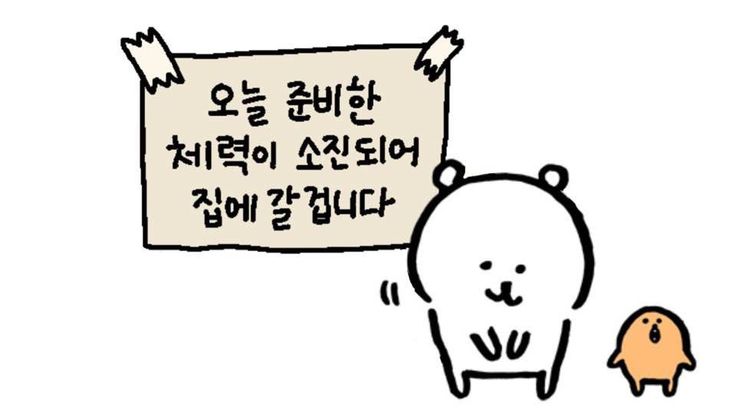 오늘 준비한
체력이 소진되어
집에 갈겁니다